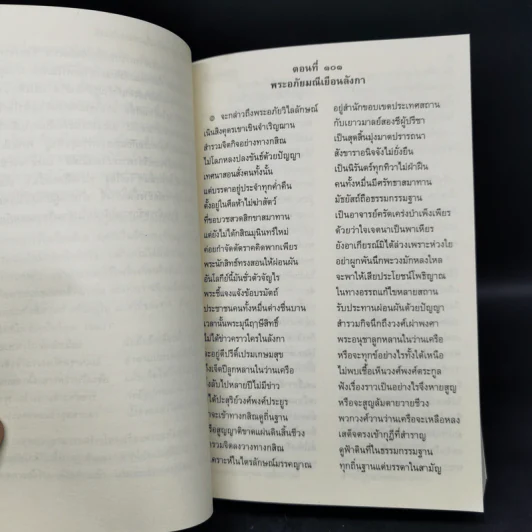 ตอนที่ ๑๐๑
พระอภัยมณีเยือนลังกา
๏ จะกล่าวถึงพระอภัยวิไลลักษณ์ อยู่สำนักขอบเขตประเทศสถาน
เนินสิงคุตรเขาเขินจำเริญฌาน กับเยาวมาลย์สองชีผู้ปรีชา
สำรวมจิตกิจอย่างทางกสิณ เป็นสุดสิ้นมุ่งมาดปรารถนา
ไม่โลภหลงปลงขันธ์ด้วยปัญญา สังขาราอนิจจังไม่ยั่งยืน
เทศนาสอนสั่งคนทั้งนั้น เป็นนิรันดร์ทุกทิวาไม่ฝ่าฝืน
แต่บรรดาอยู่ประจำทุกค่ำคืน คนทั้งหมื่นมีศรัทธาสมาทาน
ตั้งอยู่ในศีลห้าไม่ฆ่าสัตว์ มัธยัสถ์ถือธรรมกรรมฐาน
ที่ชอบวชสวดสิกขาสมาทาน เป็นอาจารย์ครัดเคร่งบำเพ็งเพียร
แต่ยังไม่ได้กสิณมุนินทร์ใหม่ ด้วยว่าใจเจตนาเป็นพาเหียร
ค่อยกำจัดตัดราคคิดพากเพียร ยังอาเกียรณ์มิได้ล่วงเพราะห่วงใย
พระนักสิทธ์ทรงสอนให้ผ่อนผัน อย่าผูกพันนึกพะวงมักหลงไหล
อันโลกีย์นี้มันชั่วตัวจัญไร จะพาให้เสียประโยชน์โพธิญาณ
พระชี้แจงแจ้งข้อบรมัตถ์ ในทางอรรถแก้ไขหลายสถาน
ประชาชนคนทั้งหมื่นต่างชื่นบาน รับประทานผ่อนผันด้วยปัญญา
เวลานั้นพระมุนีฤาษีสิทธิ์ สำรวมกิจนึกถึงวงศ์เผ่าพงศา
ไม่ได้ข่าวคราวใครในลังกา พระอนุชาลูกหลานในว่านเครือ
จะอยู่ดีปรีดิ์เปรมเกษมสุข หรือจะทุกข์อย่างไรทั้งใต้เหนือ
ลูกหลานในว่านเครือ ไม่พบเชื้อเห็นวงศ์พงศ์ตระกูล
ไปหลายปีไม่มีข่าว ฟังเรื่องราวเป็นอย่างไรจึงหายสูญ
วงศ์พงศ์ประยูร หรือจะสูญล้มตายวายชีวง
จะเข้าทางกสิณดูถิ่นฐาน พวกวงศ์วานว่านเครือจะเหลือหลง
แผ่นดินสิ้นชีวง เสด็จตรงเข้ากุฎีที่สำราญ
จิตลงวางทางกสิณ ดูฟ้าดินที่ในธรรมกรรมฐาน
ในไตรลักษณ์มรรคญาณ ทุกถิ่นฐานแต่บรรดาในสามัญ